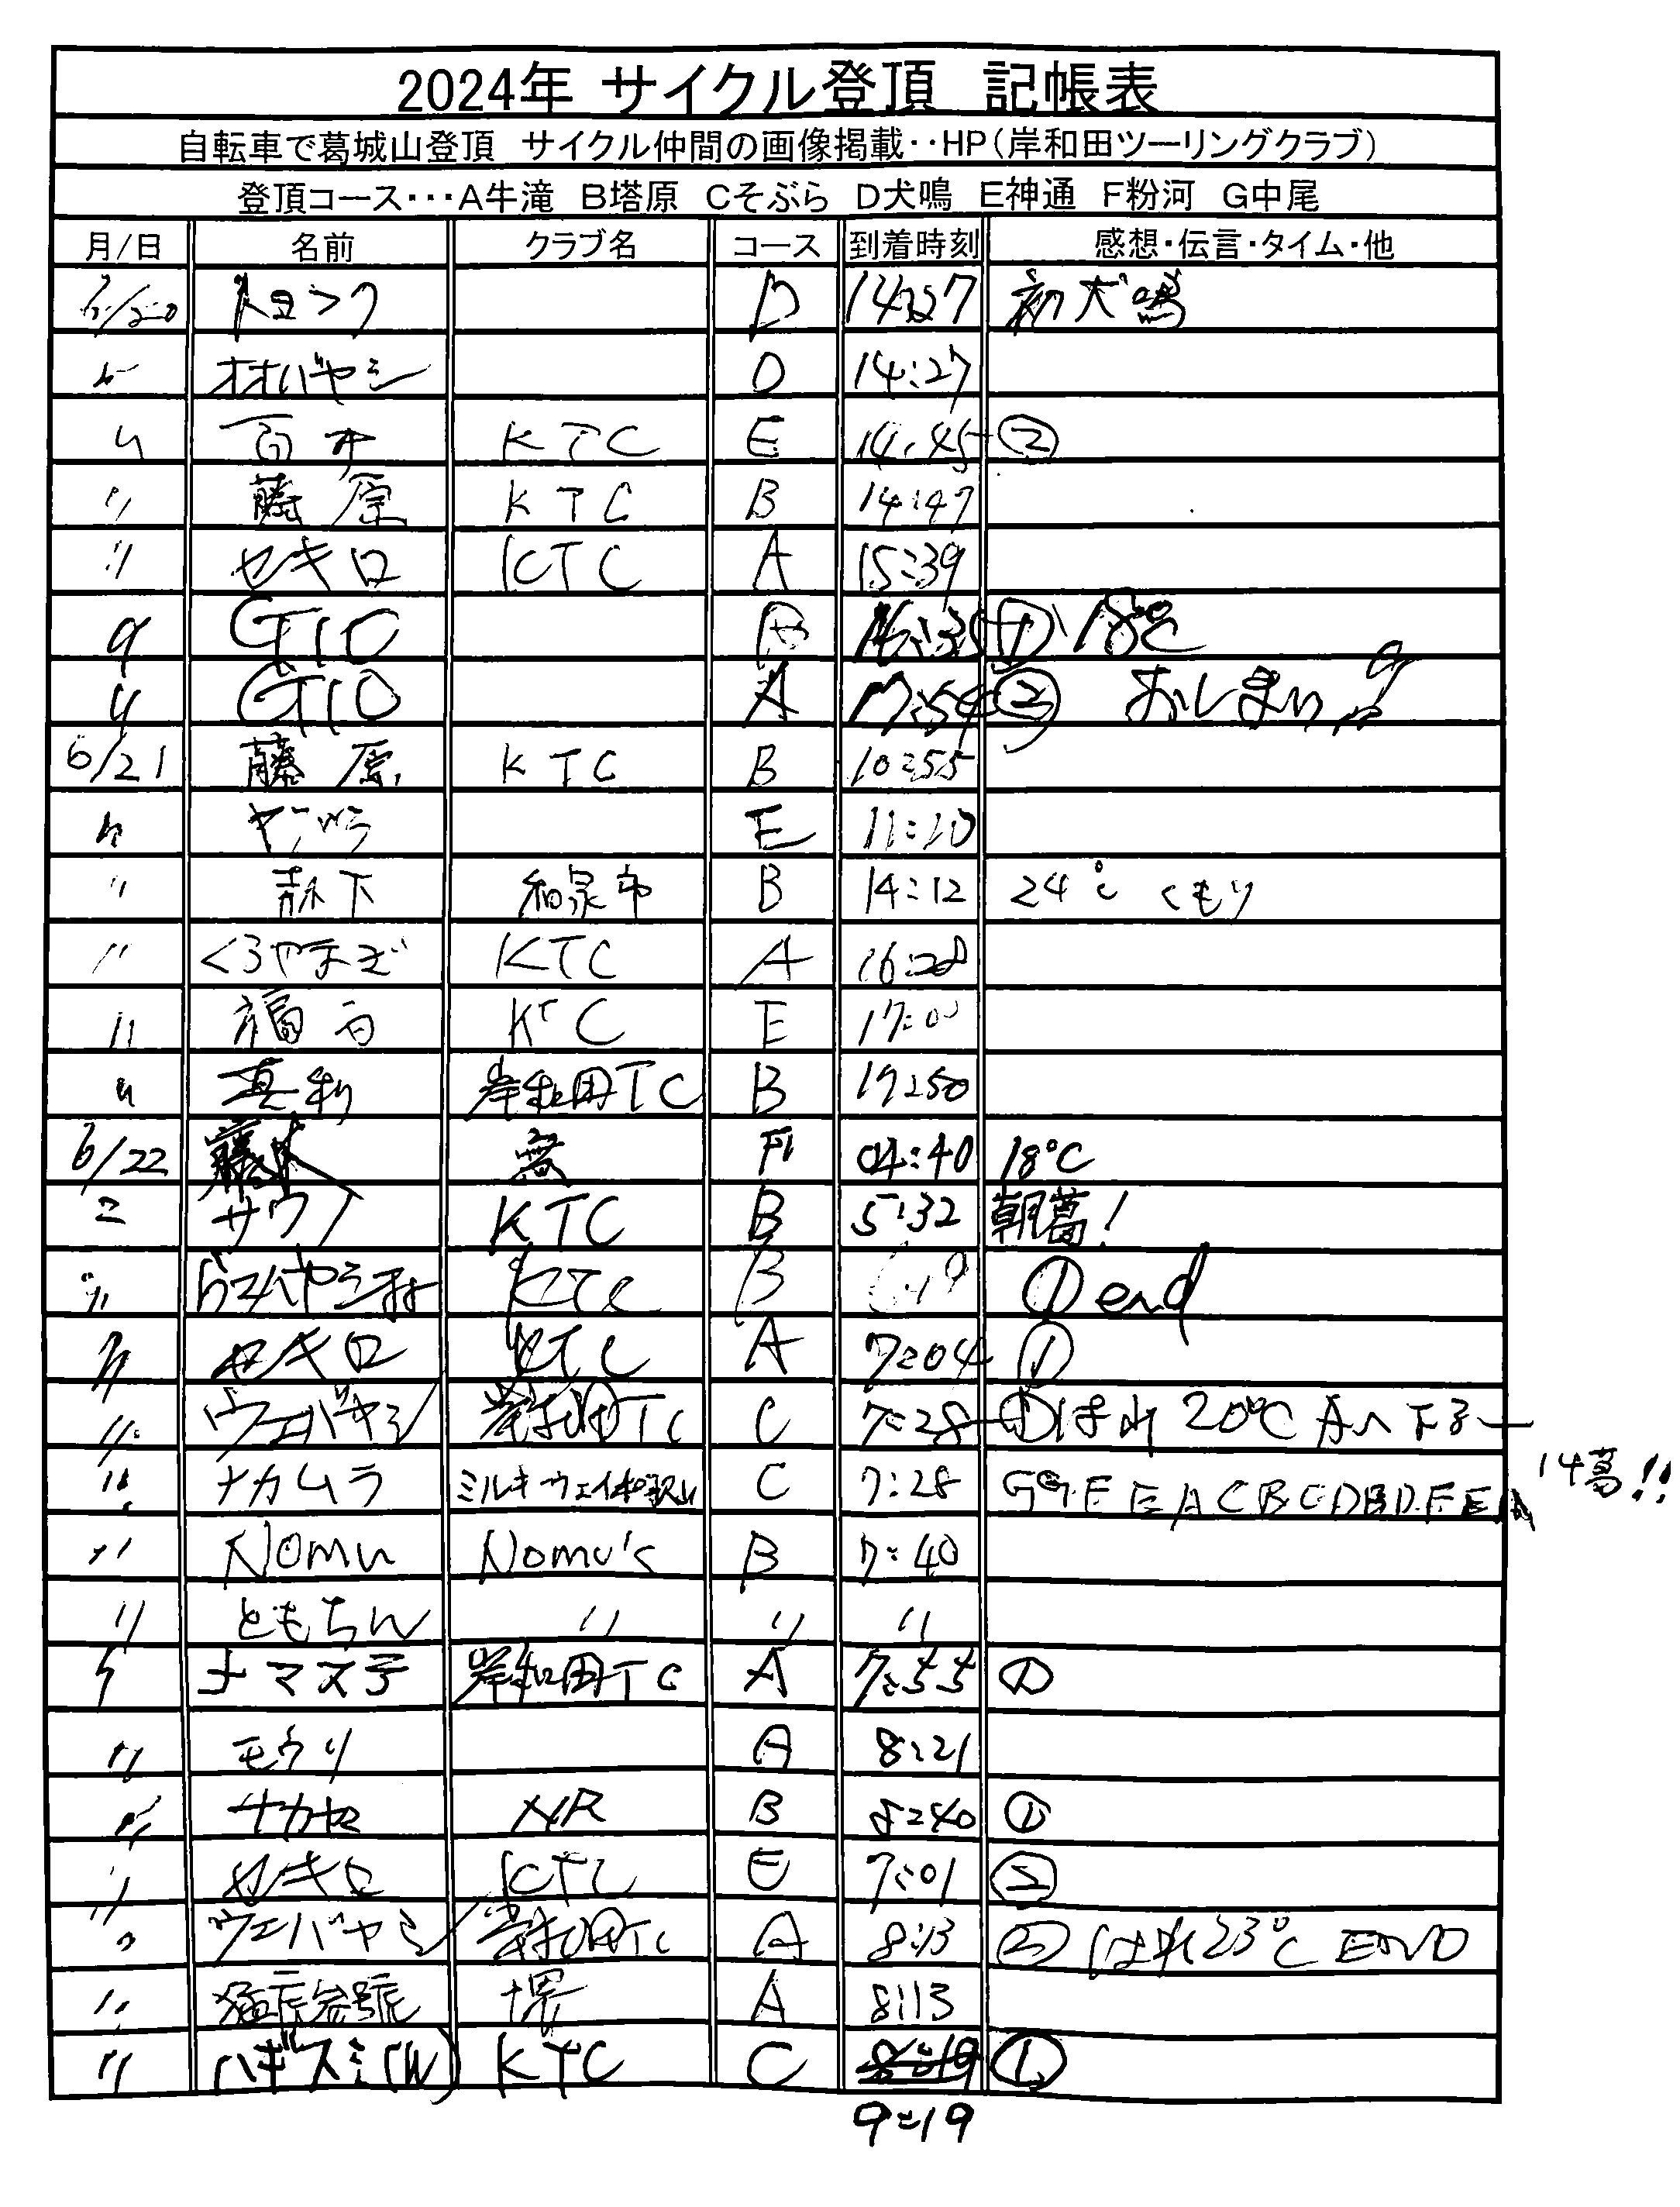 2024年 サイクル登頂 記帳表
自転車で葛城山登頂 サイクル仲間の画像掲載‥HP(岸和田ツーリングクラブ)
登頂コース・・・A牛滝 B塔原 Cそぶら D犬鳴 E神通 F粉河 G中尾
月/日 名前 クラブ名 コース 到着時刻 感想・伝言・タイム・他
6/20 D 14:27 初犬鳴
〃 オオバヤシ D 14:27
〃 百井 KTC E 14:45 ②
〃 藤原 KTC B 14:47
〃 セキロ KTC A 15:39
〃 GTIO B ① 18℃
〃 GTIO A 17:54 ② おしまい
6/21 藤原 KTC B 10:55
〃 E 11:10
〃 森下 和泉市 B 14:12 24℃ くもり
〃 くろやまだ KTC A 16:28
〃 KTC E 17:00
〃 真利 岸和田TC B 17:50
6/22 藤木 無 F 04:40 18℃
〃 サウノ KTC B 5:32 朝葛!
〃 KTC B ① end
〃 セキロ KTC A 7:04 ①
〃 ウエバヤシ 岸和田TC C 7:28 ①はれ 20℃ Aへ下る
〃 ナカムラ ミルキーウェイ和歌山 C 7:28 14葛!!
〃 Nomu Nomu's B 7:40
〃 ともちん 〃 〃 〃
〃 ナマズ子 岸和田TC A 7:55 ①
〃 モウリ A 8:21
〃 ナカセ NR B 8:40 ①
〃 セキロ KTC E 7:01 ②
〃 ウエバヤシ 岸和田TC A 8:13 ② はれ 23℃ END
〃 猛虎参號 堺 A 8:13
〃 ハギスミ(W) KTC C 8:19 ①
9:19